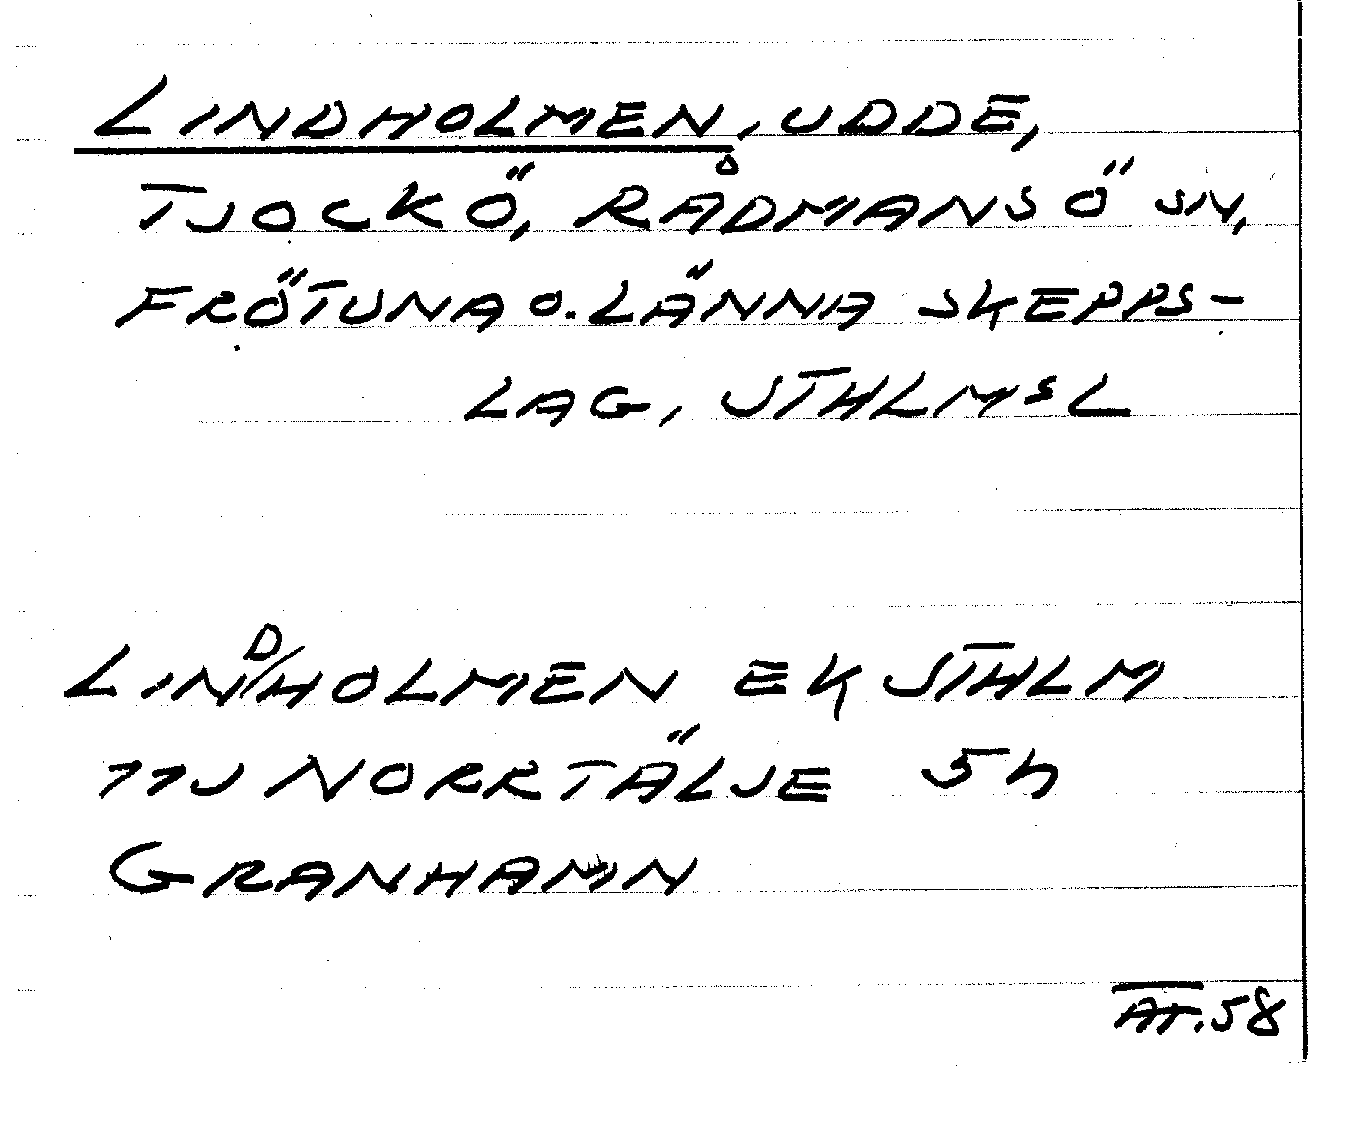 LINDHOLMEN, UDDE,
TJOCKÖ, RÅDMANSÖ SN,
FRÖTUNA O. LÄNNA SKEPPS-
LAG, STHLMS L
LINDHOLMEN EK STHLM
11J NORRTÄLJE 5h
GRANHAMN
AT. 58